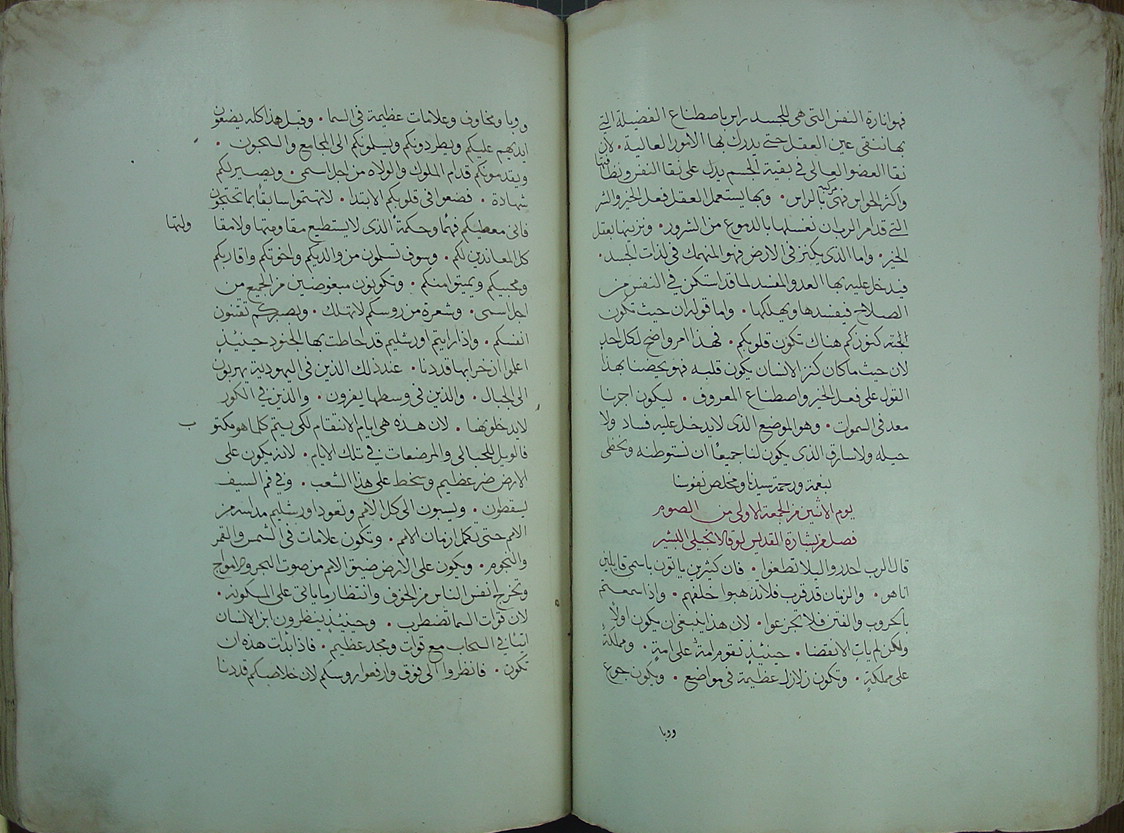 فهو انارة النفس التي هي للجسد راس باصطناع الفضيلة التي
بها تنقى عين العقل حتى يدرك بها الامور العالية . لان
نقا العضو العالي في بقية الجسم يدل على نقا النفس ونظافتها
واكثر الحواس فهي مركبة بالراس . وبها يستعمل العقل فعل الخير والشر
التي قدام الرب بان نغسلها بالدموع من الشرور . ونزينها بفعل
الخير . واما الذي يكنز في الارض فهو المنهمك في لذات الجسد .
فيدخل عليه بها العدو المفسد لما قد سكن في النفس من
الصلاح فيفسدها ويهلكها . واما قوله ان حيث تكون
كنوزكم هناك تكون قلوبكم . فهذا امر واضح لكل احد
لان حيث ما كان كنز الانسان يكون قلبه فهو يحضنا بهذا
القول على فعل الخير واصطناع المعروف . ليكون اجرنا
معد في السموات . وهو الموضع الذي لا يدخل عليه فساد ولا
حيله ولا سارق الذي يكون لنا جميعًا ان نستوطنه ونحظى
بنعمة ورحمة سيدنا ومخلص نفوسنا
يوم الاثنين من الجمعة الاولى من الصوم
فصل من بشارة القديس لوقا الانجيلي البشير
قال الرب احدروا ليلا تضلوا . فان كثيرين ياتون باسمي قايلين
انا هو . والزمان قد قرب فلا تدهبوا خلفهم . واذا سمعتم
بالحروب والفتن فلا تجزعوا . لان هذا ينبغي ان يكون اولًا
ولكن لم يات الانقضا . حينيذٍ تقوم امة على امةٍ . ومملكة
على مملكةٍ . وتكون زلازل عظيمة في مواضع . ويكون جوع
ووبا
ووبا ومخاوف وعلامات عظيمة في السما . وقبل هذا كله يضعون
ايديهم عليكم ويطردونكم ويسلمونكم الى المجامع والسجون .
ويقدمونكم قدام الملوك والولاه من اجل اسمي . ويصير لكم
شهادة . فضعوا في قلوبكم الابتدا . لا تهتموا سابقًا بما تحتجون
فاني معطيكم فهمًا وحكمة الذى لا يستطيع مقاومتها ولا مقا
ولتها
كل المعاندين لكم . وسوف تسلمون من والديكم واخوتكم واقاربكم
ومحبيكم ويميتوا منكم . وتكونون مبغوضين من الجميع من
اجل اسمى . وشعرة من روسكم لا تهلك . وبصبركم تقتنون
انفسكم . واذا رايتم اورشليم قد احاطت بها الجنود حينيذٍ
اعلموا ان خرابها قد دنا . عند ذلك الذين في اليهودية يهربون
الى الجبال . والذين في وسطها يفرون . والذين في الكور
لا يدخلونها . لان هذه هي ايام الانتقام لكي يتم كلما هو مكتو
ب
فالويل للحبالى والمرضعات في تلك الايام . لانه يكون على
الارض ضر عظيم وسخط على هذا الشعب . وفي فم السيف
يسقطون . ويسبون الى كل الامم وتعود اورشليم مداسه من
الامم حتى تكمل ازمان الامم . وتكون علامات في الشمس والقمر
والنجوم . ويكون على الارض ضيق الامم من صوت البحر والامواج
وتخرج انفس الناس من الخوف وانتظار ما ياتي على المسكونه .
لان قوات السما تضطرب . وحينيذٍ ينظرون ابن الانسان
اتيًا في السحاب مع قوات ومجد عظيم . فاذا بدات هذه ان
تكون . فانظروا الى فوق وارفعوا روسكم لان خلاصكم قد دنا